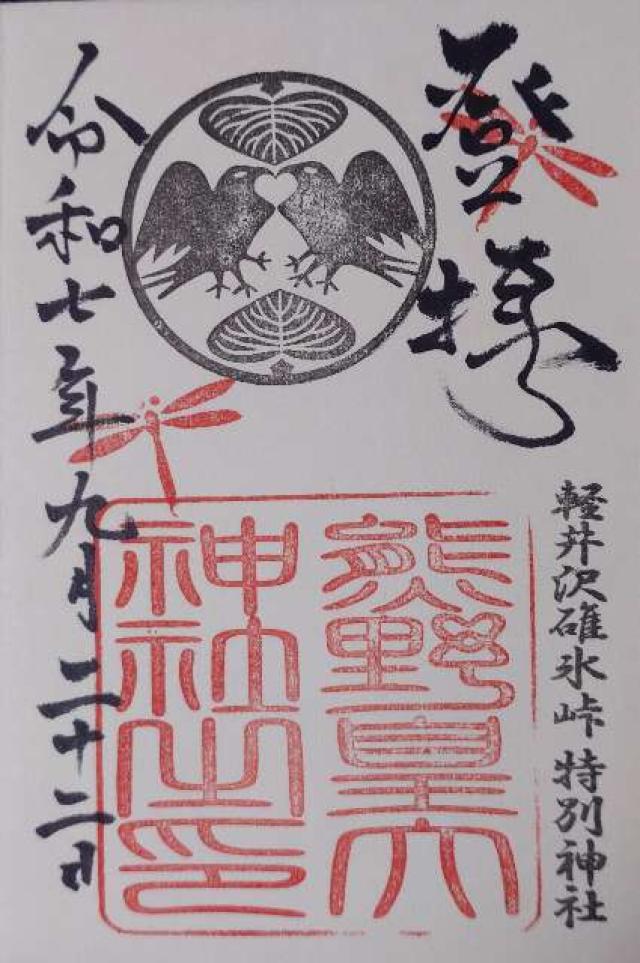 登拝
軽井沢碓氷峠 特別神社
熊野皇大
神社之印
令和七年九月二十二日